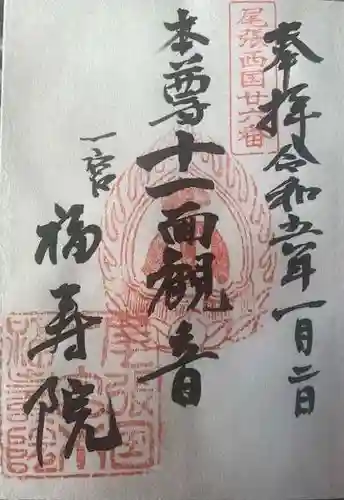 尾張西国廿六番
奉拝 令和五年一月二日
本尊十一面観音
一宮
福寿院